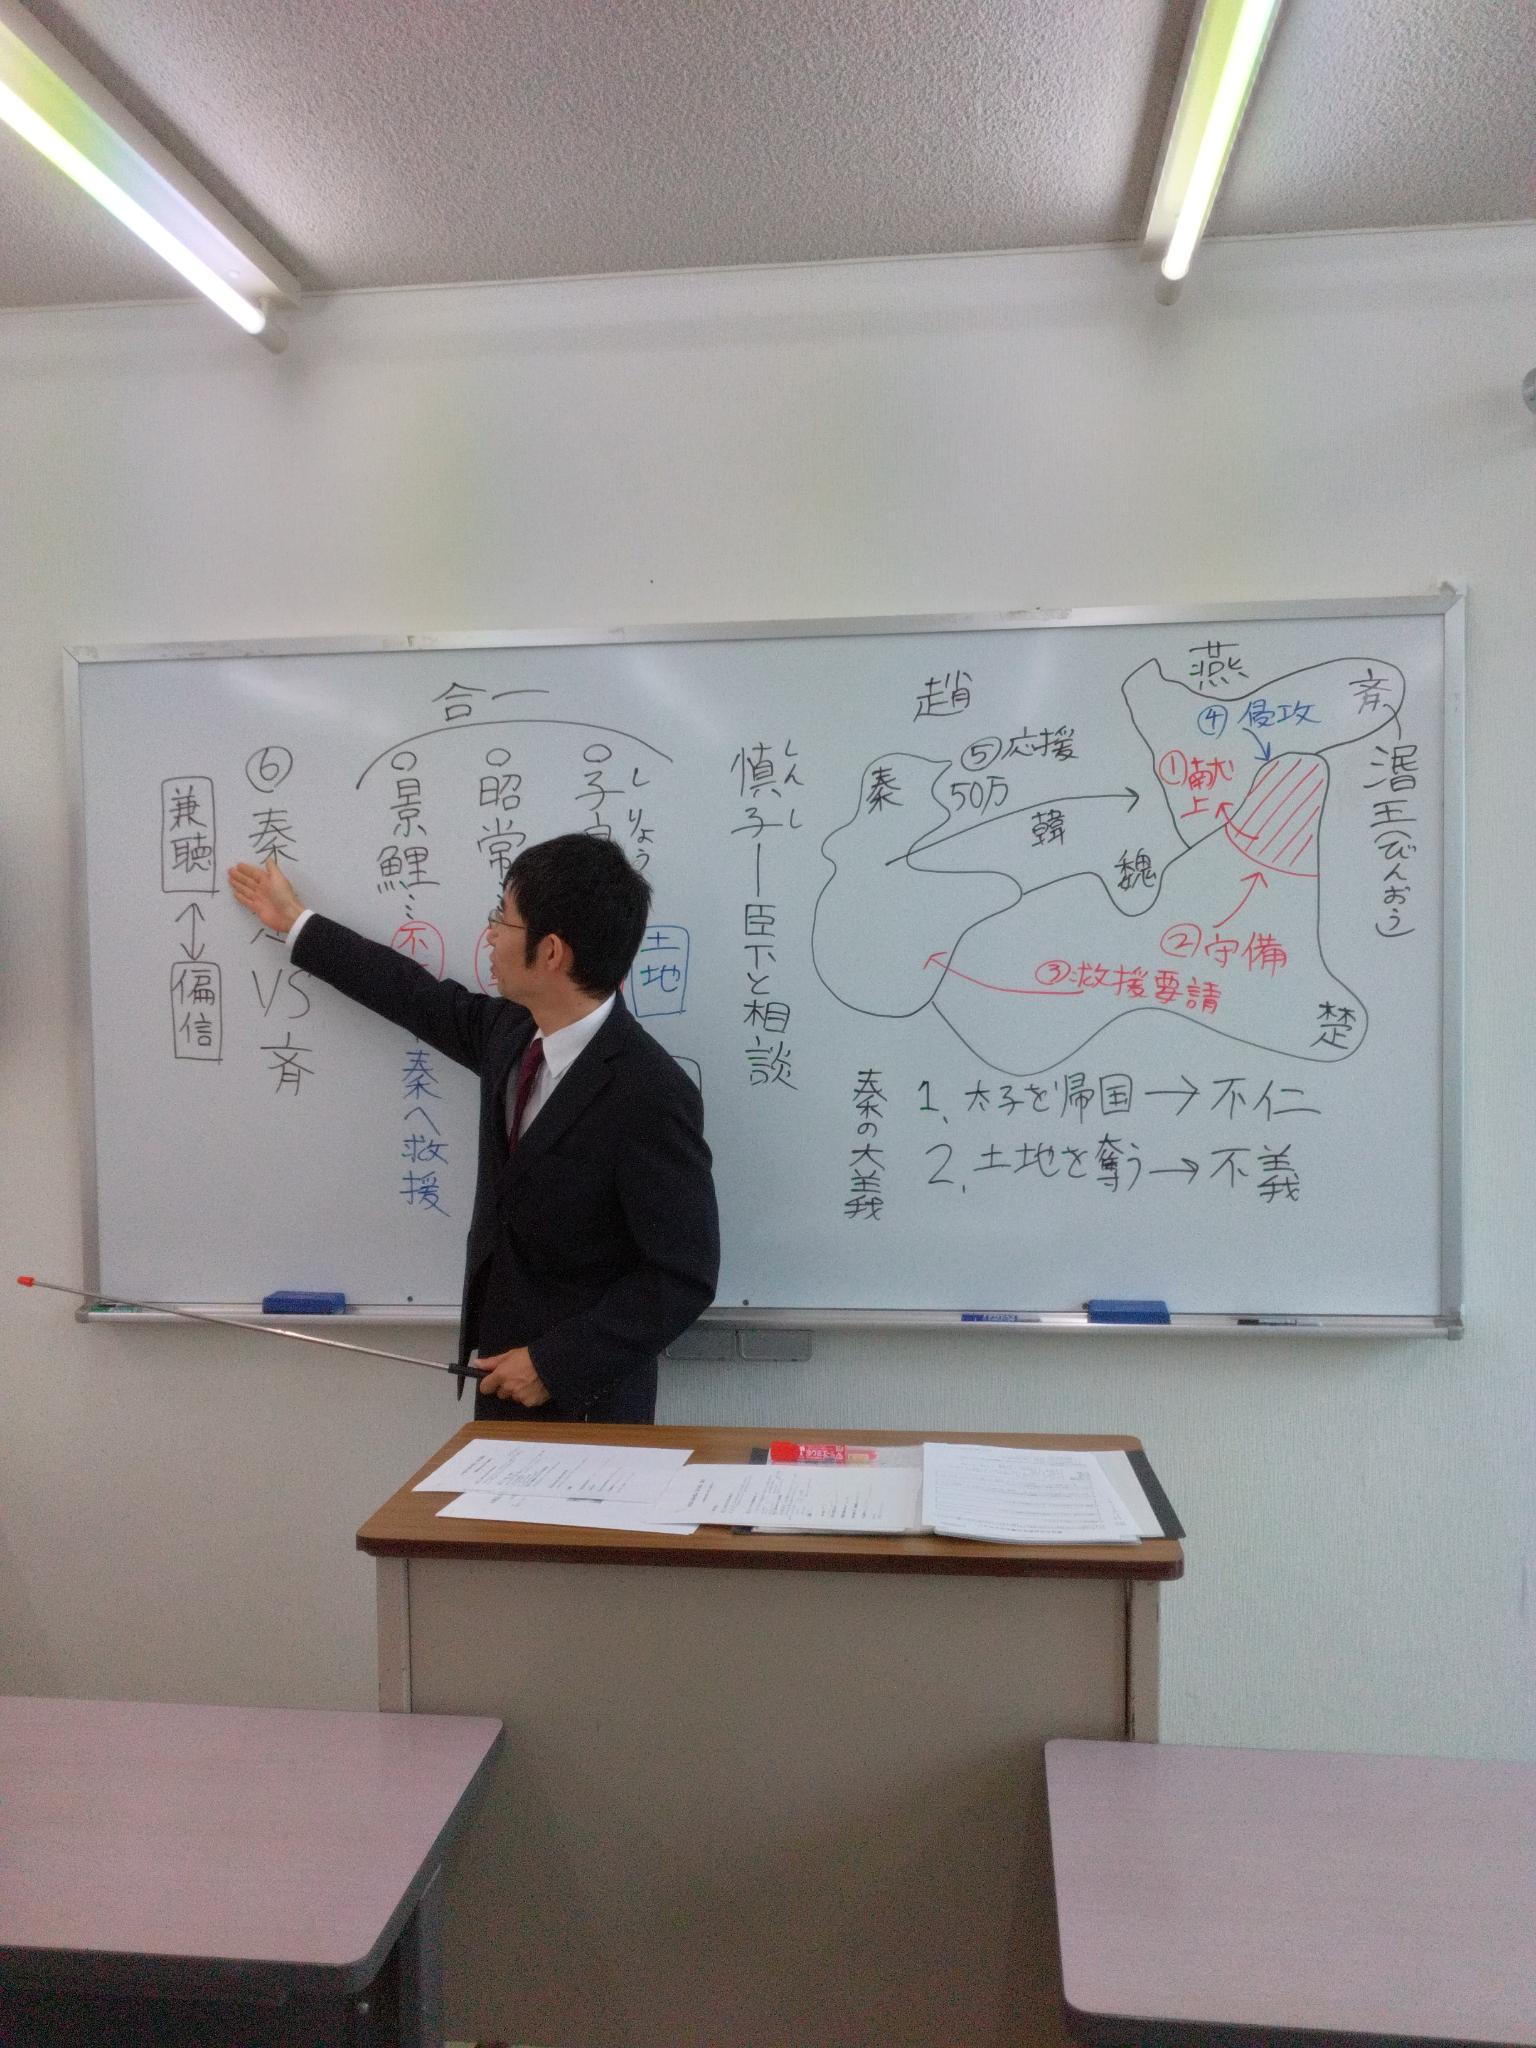 燕
斉
④侵攻
①献上
湣王(びんおう)
趙
秦
⑤応援
50万
韓
魏
②守備
③救援要請
楚
秦の大義
1、太子を帰国→不仁
2、土地を奪う→不義
しんし
慎子ー臣下と相談
合一
しりょう
○子
土地
○昭常
○景鯉…不
秦へ救援
⑥秦
VS斉
兼聴
↔
偏信